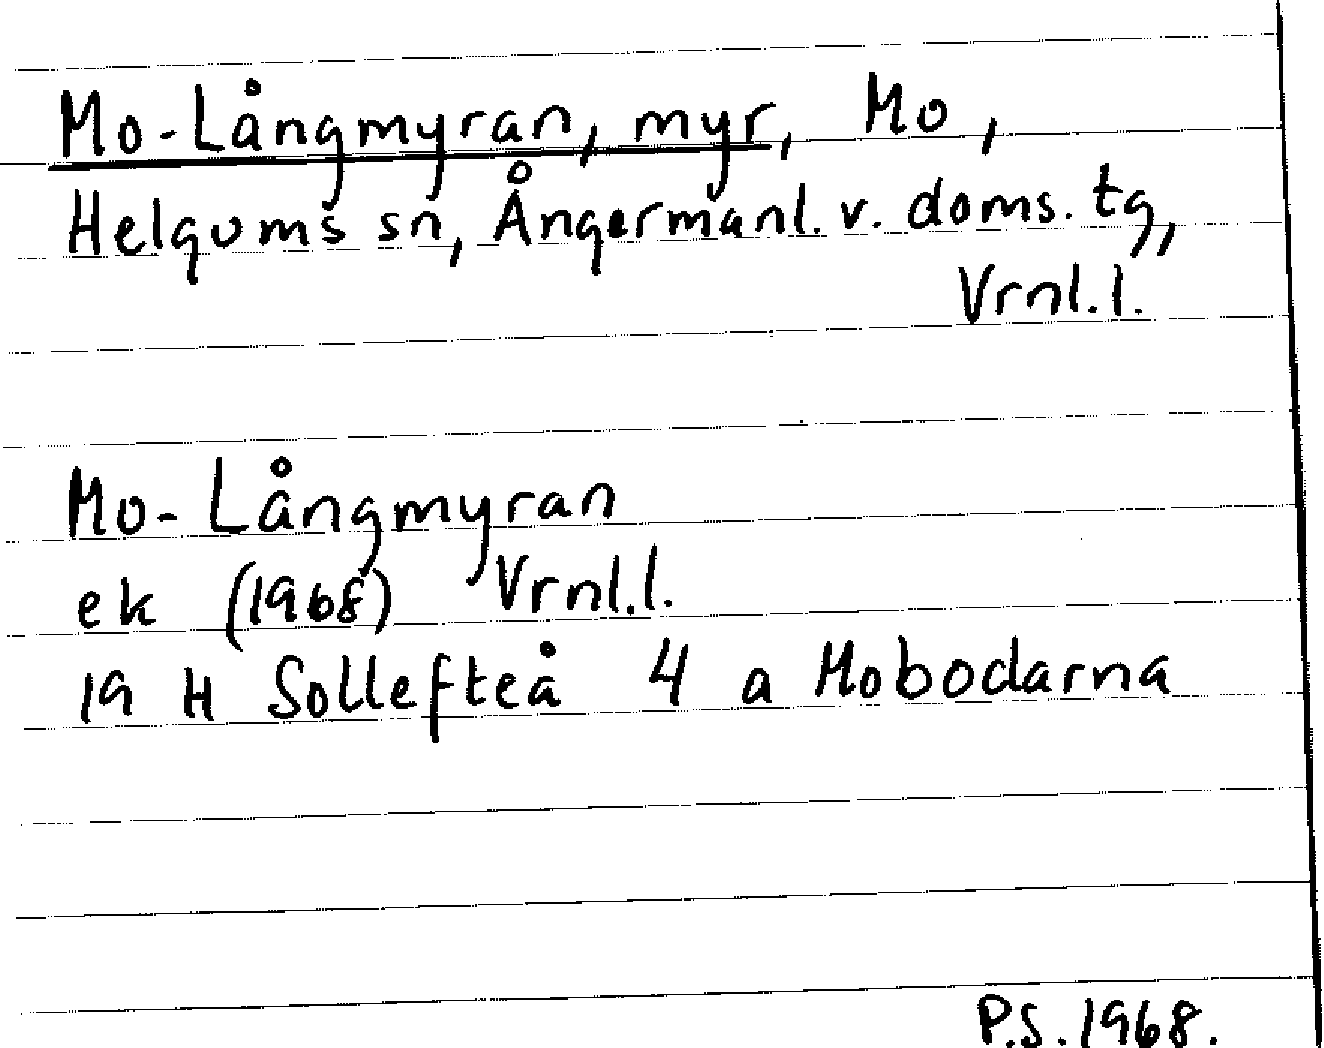 Mo-Långmyran, myr, Mo,
Helgums sn, Ångermanl. v. doms. tg,
Vrnl. l.
Mo-Långmyran
ek (1968) Vrnl. l.
19 H Sollefteå 4 a Mobodarna
P.S. 1968.